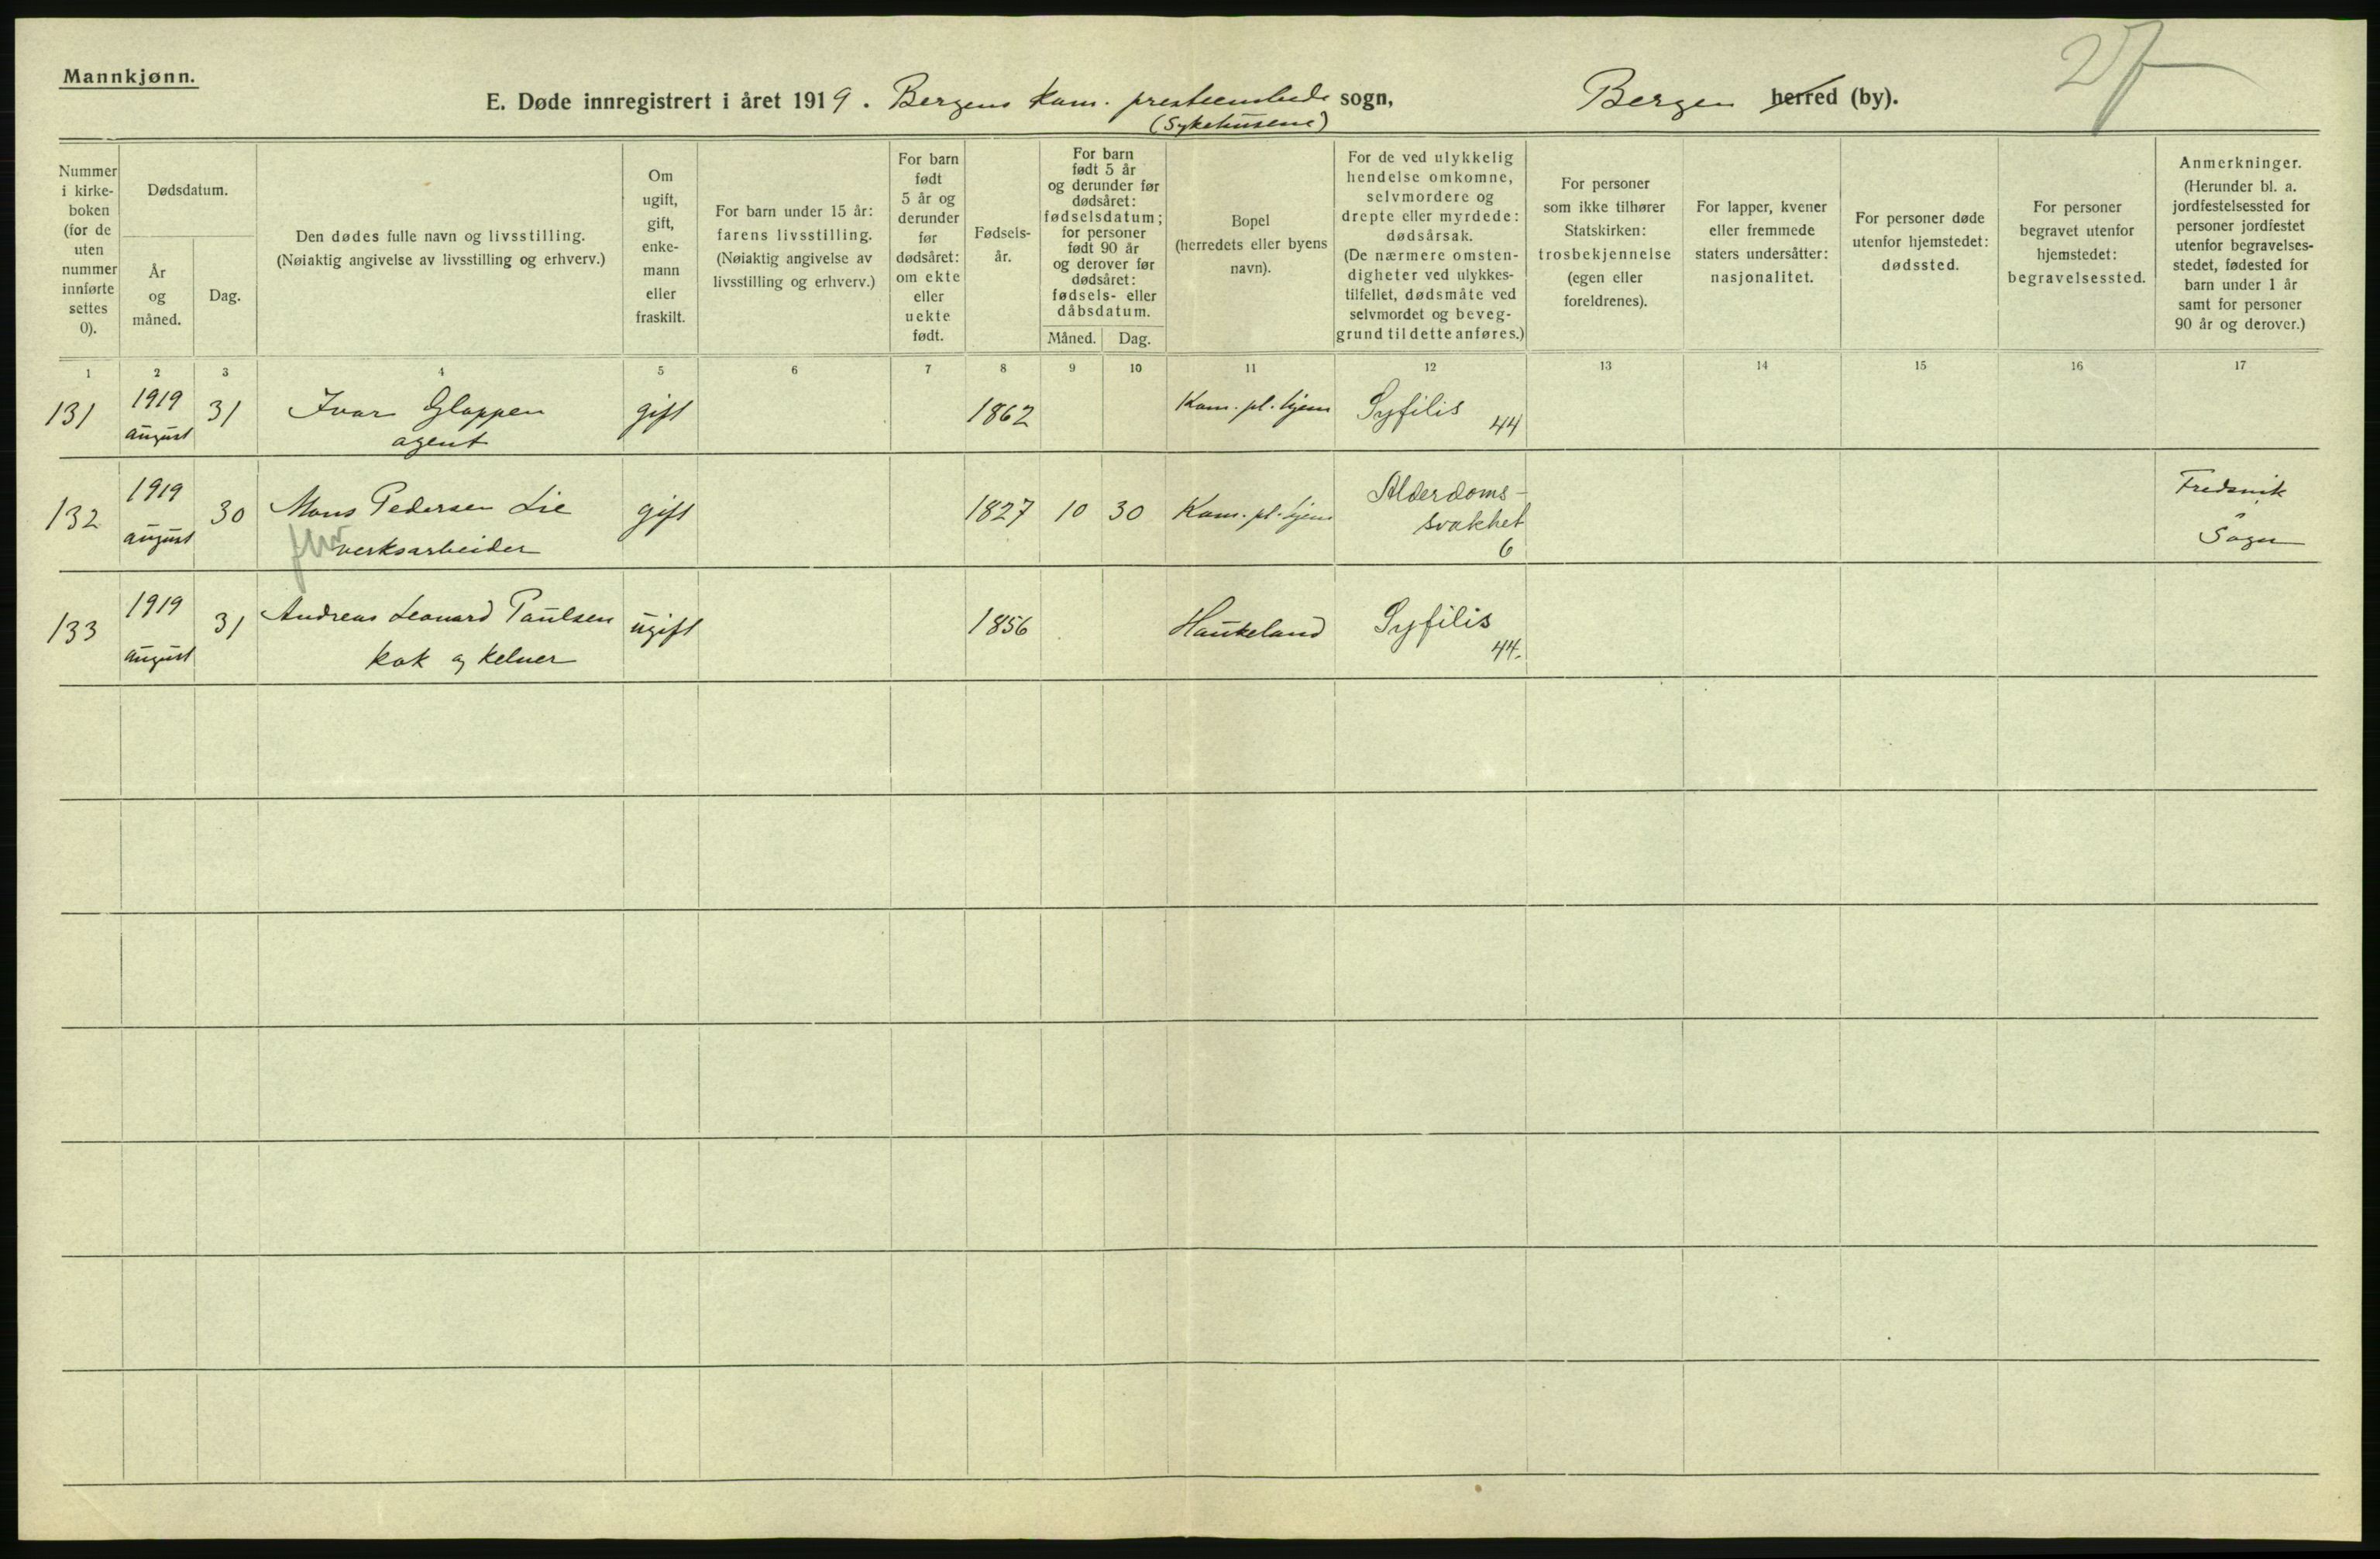 27
Mannkjønn.
E. Døde innregistrert i året 1919. Bergens kom. presteembede sogn, Bergen herred (by).
(Sykehusene)
Nummer i kirke-boken (for de uten nummer innførte settes 0).
Dødsdatum.
År og måned.
Dag.
Den dødes fulle navn og livsstilling.
(Nøiaktig angivelse av livsstilling og erhverv.)
Om ugift, gift, enke-mann eller fraskilt.
For barn under 15 år: farens livsstilling.
(Nøiaktig angivelse av livsstilling og erhverv.)
For barn født 5 år og derunder før dødsåret: om ekte eller uekte født.
Fødsels-år.
For barn født 5 år og derunder før dødsåret: fødselsdatum; for personer født 90 år og derover før dødsåret: fødsels- eller dåbsdatum.
Måned.
Dag.
Bopel (herredets eller byens navn).
For de ved ulykkelig hendelse omkomne, selvmordere og drepte eller myrdede: dødsårsak.
(De nærmere omsten-digheter ved ulykkes-tilfellet, dødsmåte ved selvmordet og beveg-grund til dette anføres.)
For personer som ikke tilhører Statskirken: trosbekjennelse (egen eller foreldrenes).
For lapper, kvener eller fremmede staters undersåtter: nasjonalitet.
For personer døde utenfor hjemstedet: dødssted.
For personer begravet utenfor hjemstedet: begravelsessted.
Anmerkninger.
(Herunder bl. a. jordfestelsessted for personer jordfestet utenfor begravelses-stedet, fødested for barn under 1 år samt for personer 90 år og derover.)
1 2 3 4 5 6 7 8 9 10 11 12 13 14 15 16 17
131 1919 august 31 Ivar Gloppen gift 1862 Kom. pl. hjem Syfilis 44
agent
132 1919 august 30 Mons Pedersen Lie gift 1827 10 30 Kom. pl. hjem Alderdoms-svakhet 6 Fredsvik Sogn
verksarbeider
133 1919 august 31 Andreas Leonard Paulsen ugift 1856 Haukeland Syfilis 44.
kok og kelner